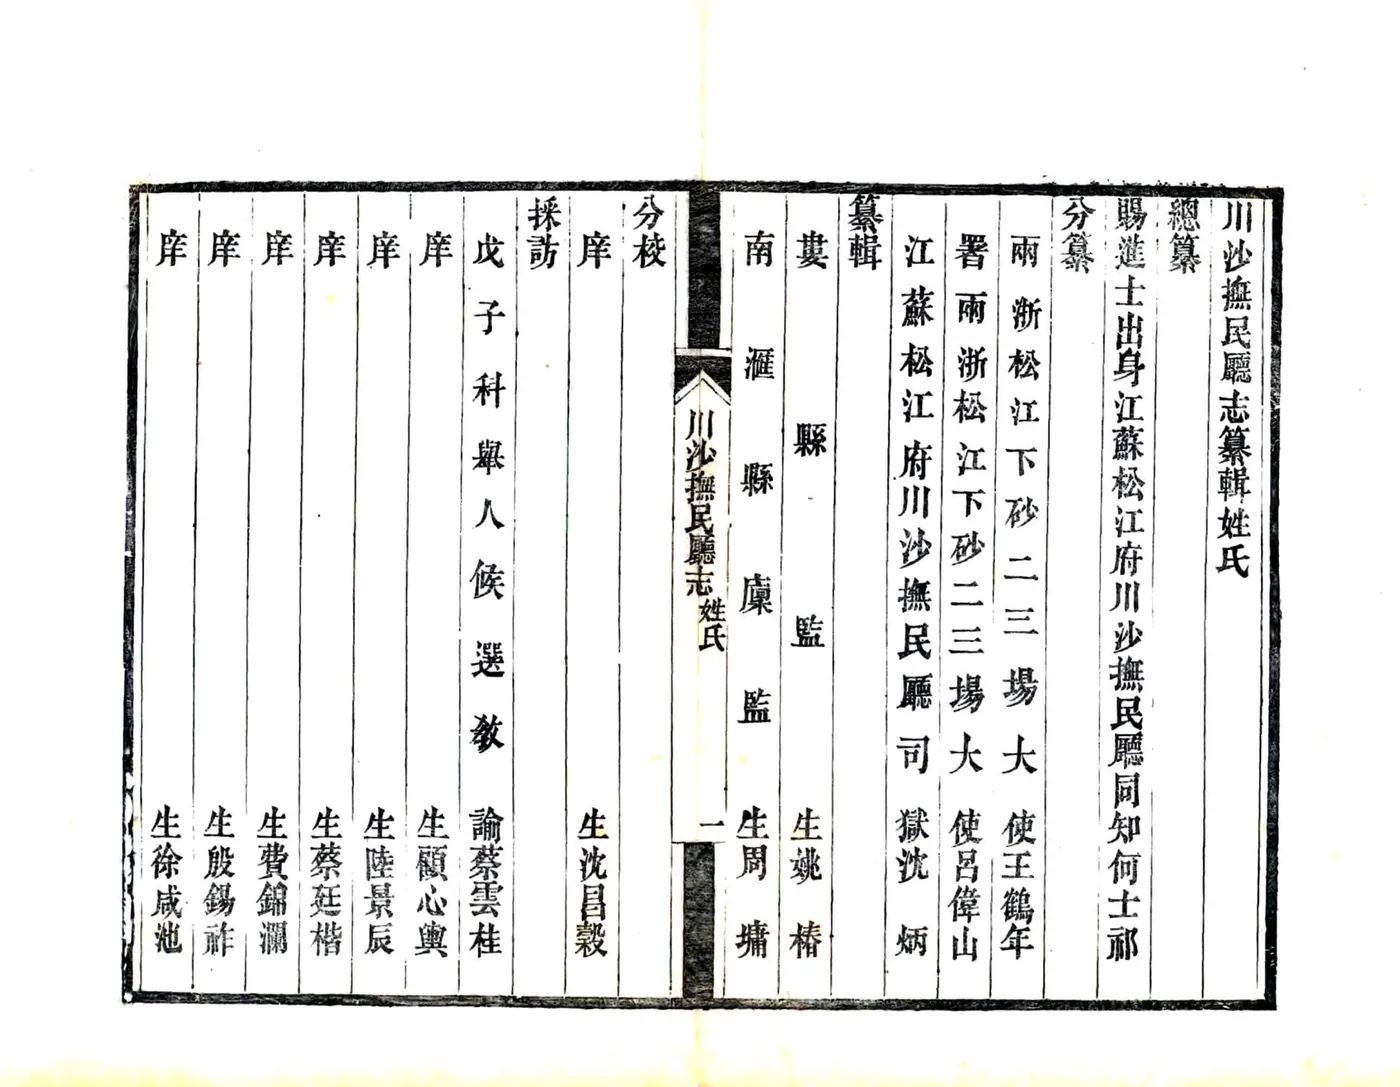 川沙撫民廳志纂輯姓氏
總纂
賜進士出身江蘇松江府川沙撫民廳同知何士祁
分纂
兩浙松江下砂二三場大使王鶴年
署兩浙松江下砂二三場大使呂偉山
江蘇松江府川沙撫民廳司獄沈炳
纂輯
婁縣監生姚椿
南滙縣廩監生周墉
川沙撫民廳志 姓氏 一
分校
庠生沈昌穀
採訪
戊子科舉人候選教諭蔡雲桂
庠生顧心輿
庠生陸景辰
庠生蔡廷楷
庠生費錦瀾
庠生殷錫祚
庠生徐咸池